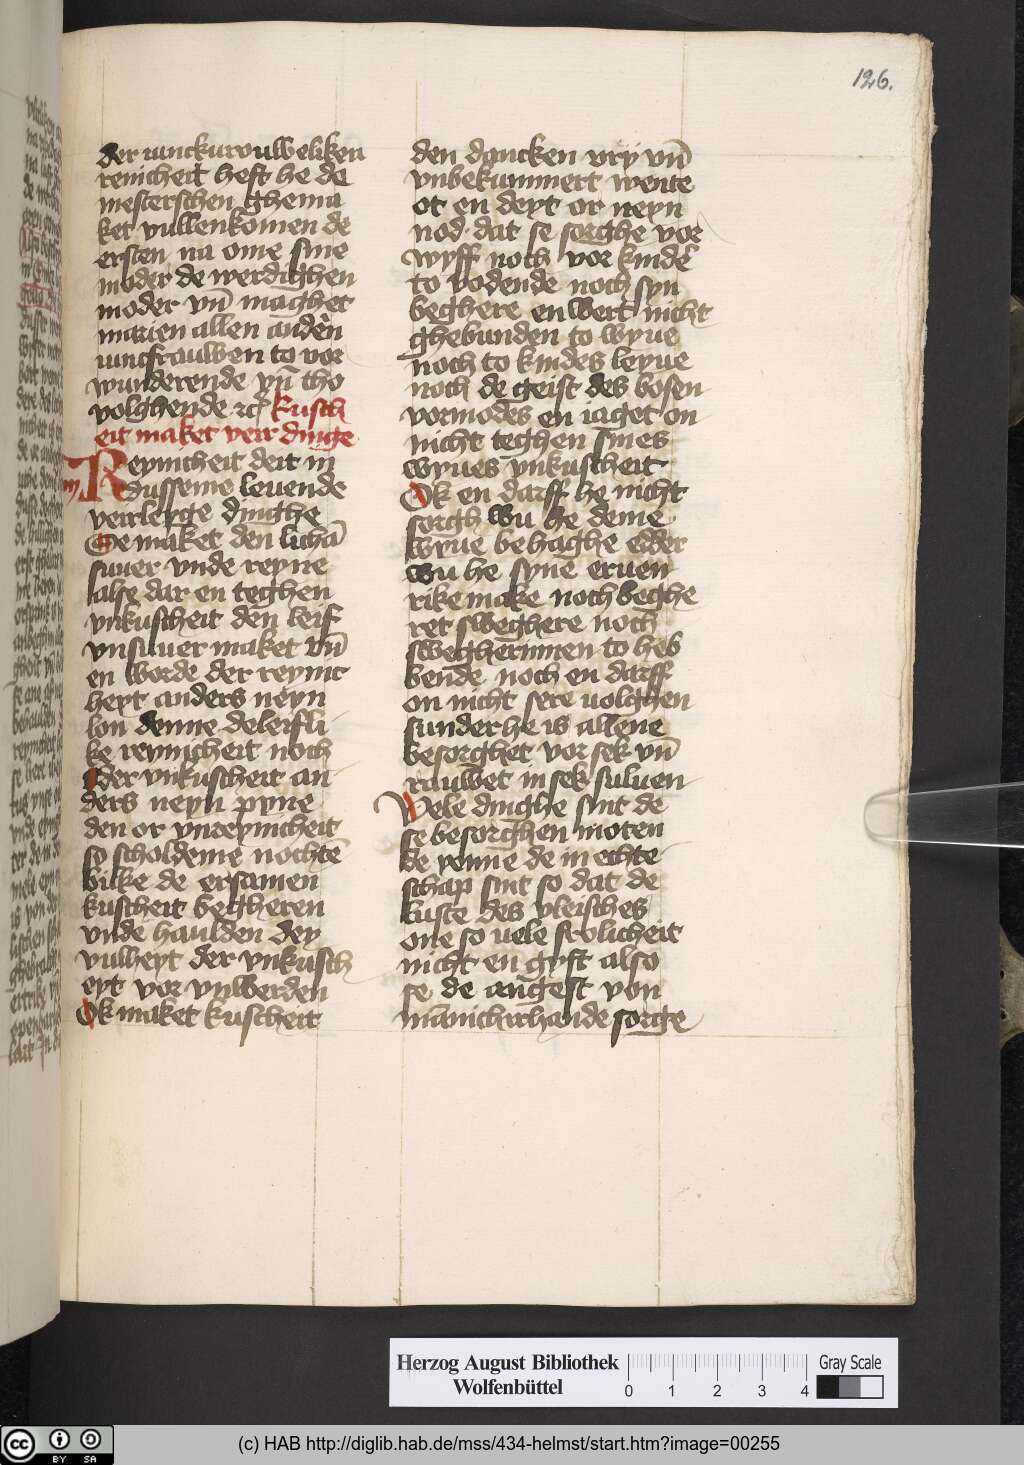 126.
der iunckurouweliken
renicheit heft he de
mesterschen ghema
ket vullenkomen de
ersten na ome sine
moder de werdighen
moder vn̄ maghet
marien allen andēn
iuncfrauwen to vor
wunderende vn̄ tho
volghende kusch
eit maket veir dinge
Reynicheit deit in
dusseme leuende
veirleyge dinghe
Se maket den lichā
suuer vnde reyne
alse dar en teghen
vnkuscheit den leif
vnsuuer maket vn̄
en worde der reynic
heyt anders neyn
lon denne de leifli
ke reynicheit noch
oder vnkuscheit an
ders neyn pyne
den or vnreynicheit
so scholdeme nochtē
bilke de ersamen
kuscheit begheren
vnde haulden dey
vulheyt der vnkusch
eyt vor vnwerden
Ok maket kuscheit
den dancken vrij vn̄
vnbekummert wente
ot en deyt or neyn
nod dat se sorghe vor
wyff noch vor kinde
to vodende noch syn
beghere en wert nicht
ghebunden to wyue
noch to kindes leyue
noch de geist des bosen
vormodes en iaget on
nicht teghen sines
wyues vnkuscheit
Ok en darff he nicht
sorgh wu he deme
wyue behaghe eder
wu he syne eruen
rike make noch beghe
ret sweghere noch
swegherinnen to heb
bende noch en darff
on nicht sere volghen
sunder he is allene
besorghet vor sek vn̄
rauwet in sek suluen
Vele dinghe sint de
se besorghen moten
de yenne de in echte
schap sint so dat de
luste des vleisches
one so vele frolicheit
nicht en gyft also
se de angest von
mānicherhande sorge
Herzog August Bibliothek
Wolfenbüttel
0 1 2 3 4
Gray Scale
cc BY SA
(c) HAB http://diglib.hab.de/mss/434-helmst/start.htm?image=00255